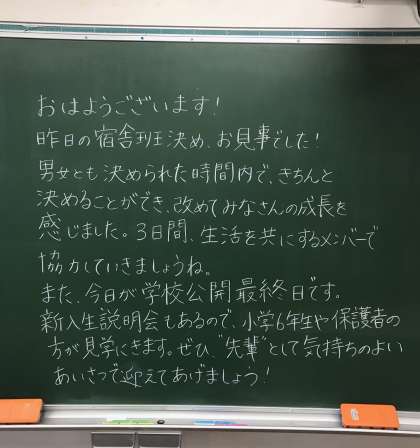 おはようございます！
昨日の宿舎班決め、お見事でした！
男女とも決められた時間内で、きちんと
決めることができ、改めてみなさんの成長を
感じました。3日間、生活を共にするメンバーで
協力していきましょうね。
また、今日が学校公開最終日です。
新入生説明会もあるので、小学6年生や保護者の
方が見学にきます。ぜひ、"先輩"として気持ちのよい
あいさつで迎えてあげましょう！